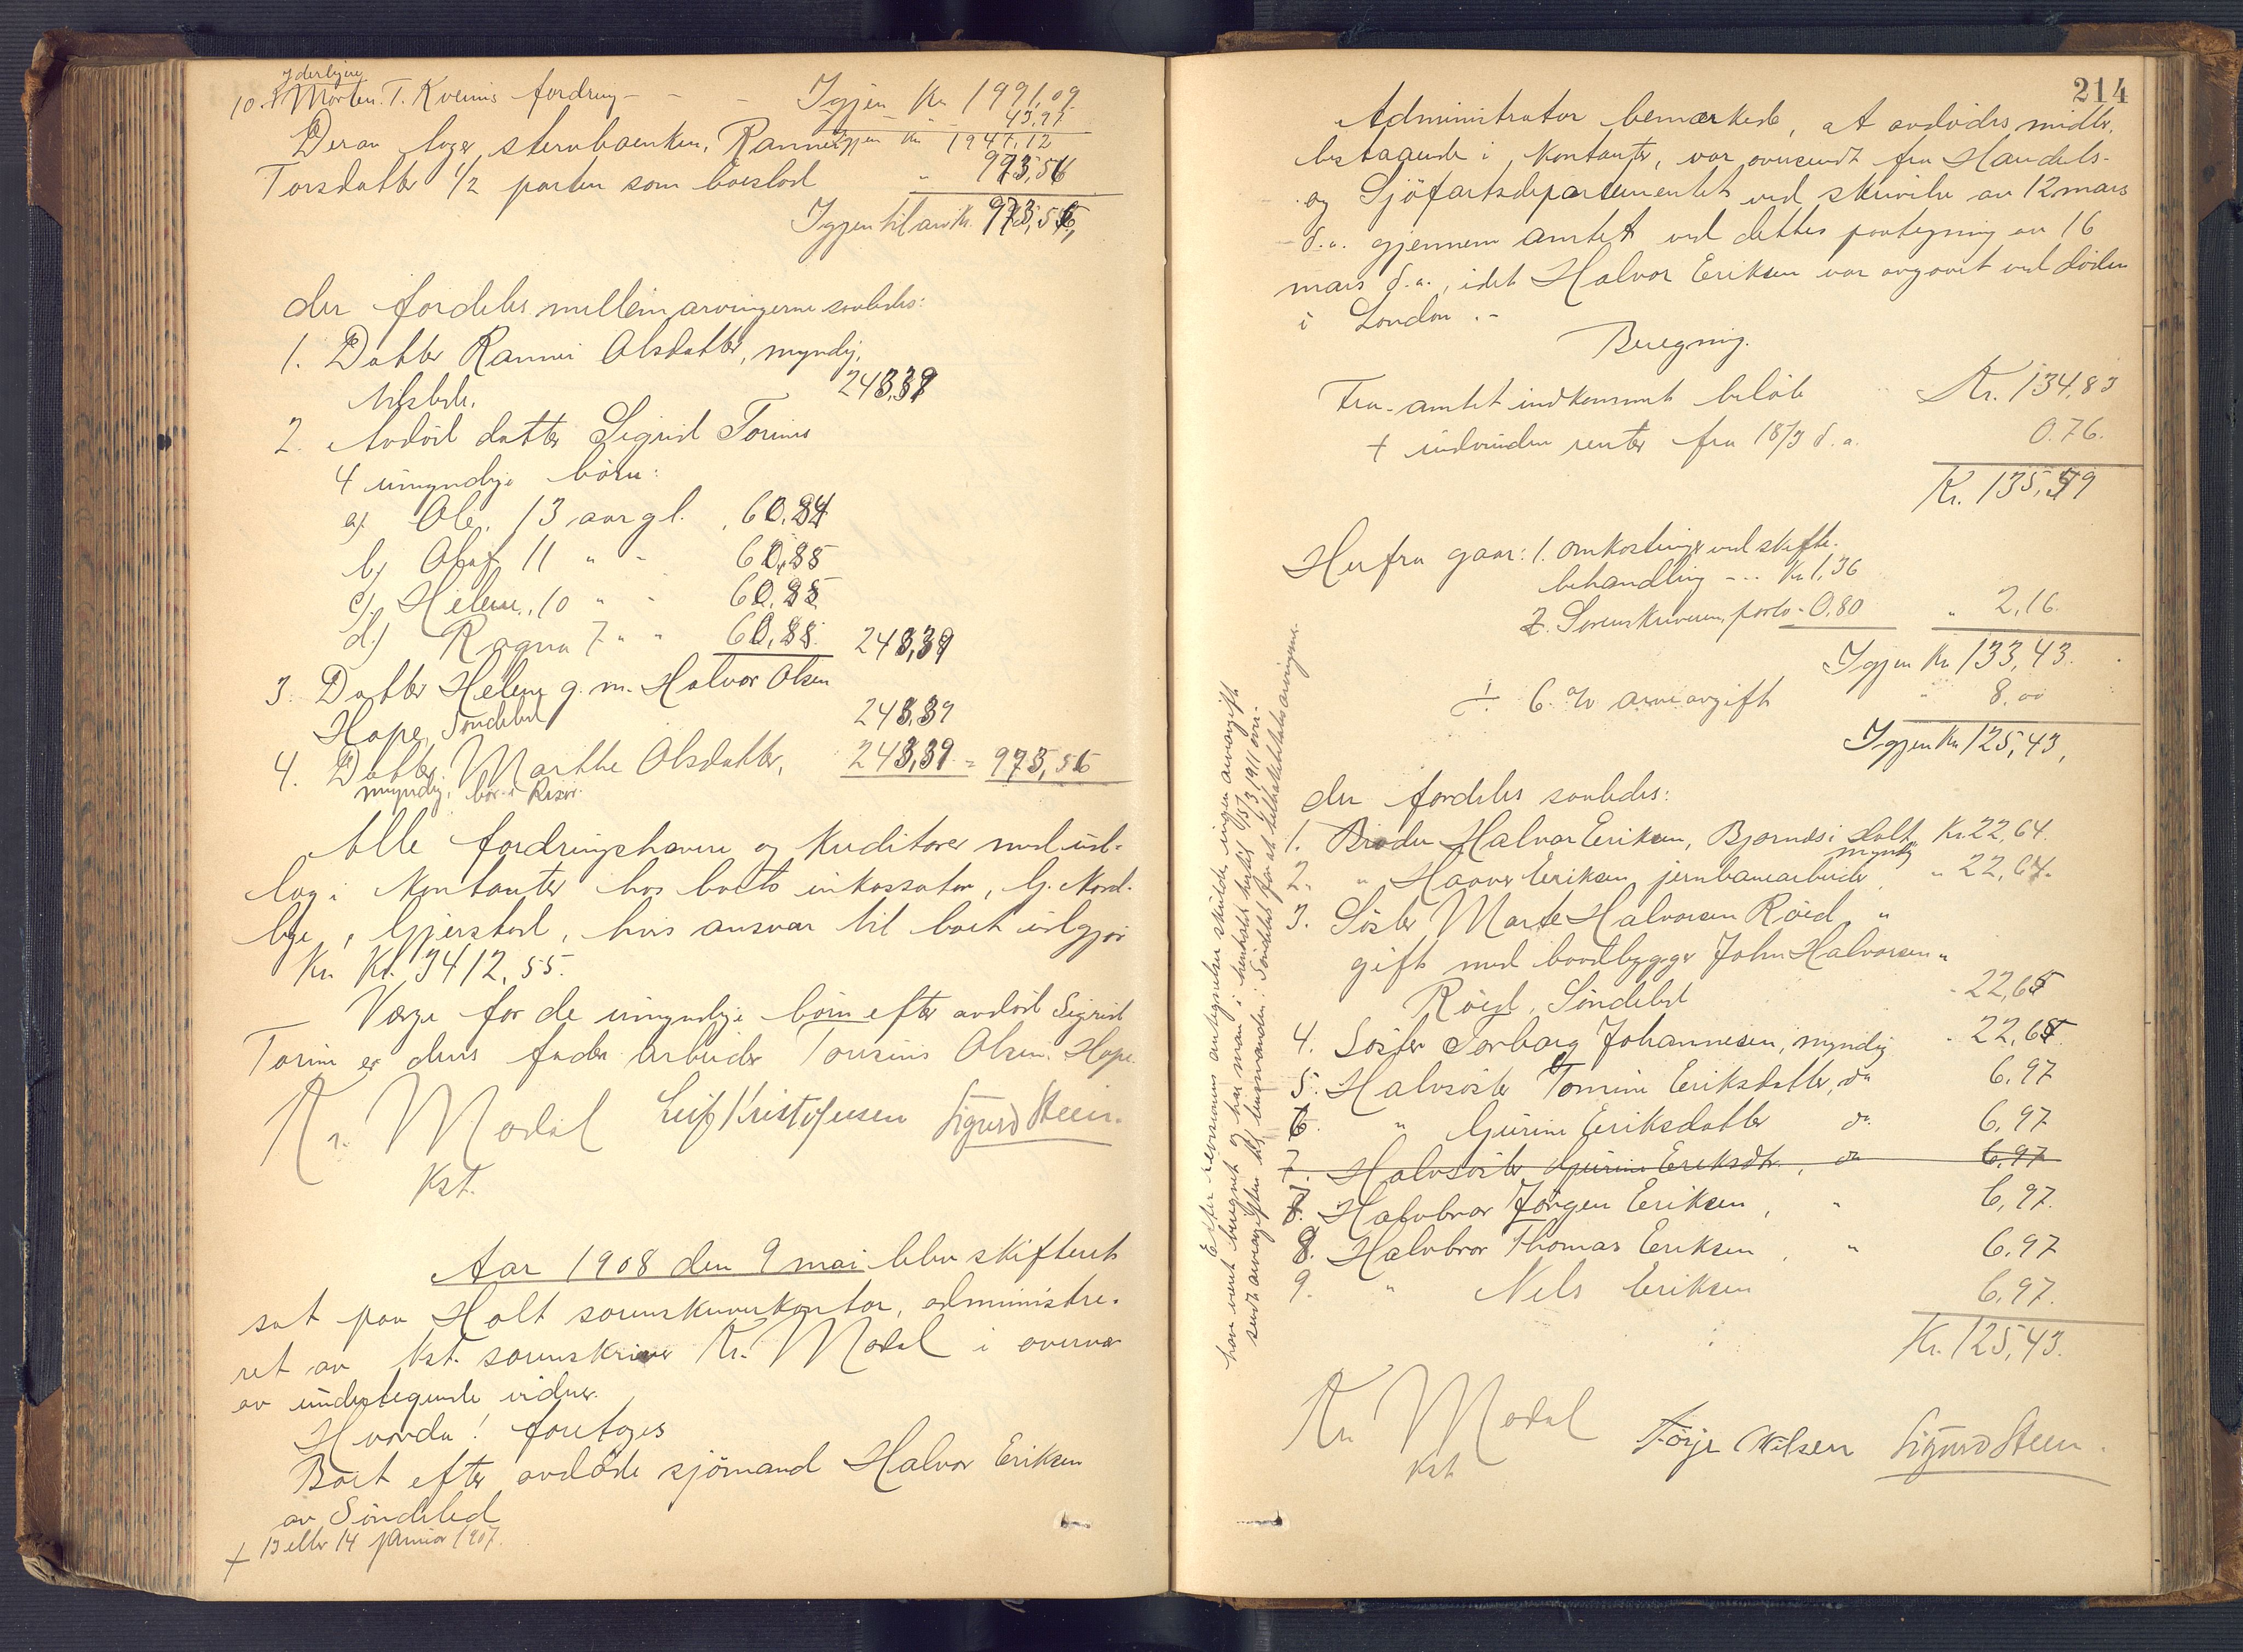 Yderligere
10. Morten T. Kveims fordring - - - Igjen Kr 1991,09
43,97
Derav tager stervboenken, Rannei Igjen Kr 1947,12
Torsdatter 1/2 parten som boeslod " 973,56
Igjen til arv Kr. 973,56,
der fordeles mellem arvingerne saaledes:
1. Datter Rannei Olsdatter, myndig,
243,39
2. Avdød datter Sigrid Torines
4 umyndige børn:
a). Ole, 13 aar gl. 60,84
b) Olaf 11 " - 60,85
c). Helene, 10 " - 60,85
d.) Ragna 7 " " 60,85. 243,39
3. Datter Helene g. m. Halvor Olsen
Hope, Søndeled 243,39
4. Datter Marthe Olsdatter, 243,39 = 973,56
myndig, bor i Risør.
Alle fordringshavere og kreditorer med ud-
læg i kontanter hos boets inkassator, G. Mord-
lye, Gjerstad, hvis ansvar til boet udgjør
Kr. 3412,55.
Værge for de umyndige børn efter avdød Sigrid
Torine er deres fader arbeider Tousins Olsen Hope.
Kr. Modal Leif Kristofersen Sigurd Steen.
Kst.
Aar 1908 den 9 mai blev skifteret
sat paa Holt sorenskriverkontor, administre-
ret av kst. sorenskriver Kr. Modal i overvær
av undertegnede vidner.
Hvorda! foretages
Boet efter avdøde sjømand Halvor Eriksen
av Søndeled
+ 13 eller 14 januar 1907.
214
Administrator bemærkede, at avdødes midler,
bestaaende i kontanter, var oversendt fra Handels-
og Sjøfartsdepartementet ved skrivelse av 12 mars
d.a. gjennem amtet ved dettes paategning av 16
mars d.a., idet Halvor Eriksen var avgaaet ved døden
i London.-
Beregning.
Fra amtet indkommet beløb Kr. 134,83
+ indvundne renter fra 18/3 d. a. 0.76.
Kr. 135,59
Herfra gaar: 1. omkostninger ved skifte-
behandling - - - Kr 1,36
2. Sorenskriveren, porto - 0,80 " 2,16.
Igjen Kr 133,43.
÷ 6 % arveavgift " 8,00
Igjen Kr 125,43,
der fordeles saaledes:
1. Broder Halvor Eriksen, Bjornds i Holt, Kr. 22,64.
myndig
2. " Haaver Eriksen, jernbanearbeider, " 22,64.
3. Søster Marte Halvorsen Røed, "
gift med baadbygger John Halvorsen "
Røed, Søndeled - 22,65
4. Søster Torborg Johannesen, myndig - 22,65.
5. Halvsøster Tomine Eriksdatter, do 6,97
6. " Gurine Eriksdatter do. 6,97
7. Halvsøster Gurine Eriksdtr., do 6,97
7. Halvbror Jørgen Eriksen, " 6,97.
8. Halvbror Thomas Eriksen, " 6.97
9. " Nels Eriksen 6,97.
Kr. 125,43.
Kr Modal Törje Nilsen Sigurd Steen.
Kst
Efter revisionens antegnelser skulde ingen arveavgift
have været beregnet og har man i henhold hertil 15/3 1911 over-
sendt arveavgiften til lensmanden i Søndeled for at tilbakebetales arvingerne.